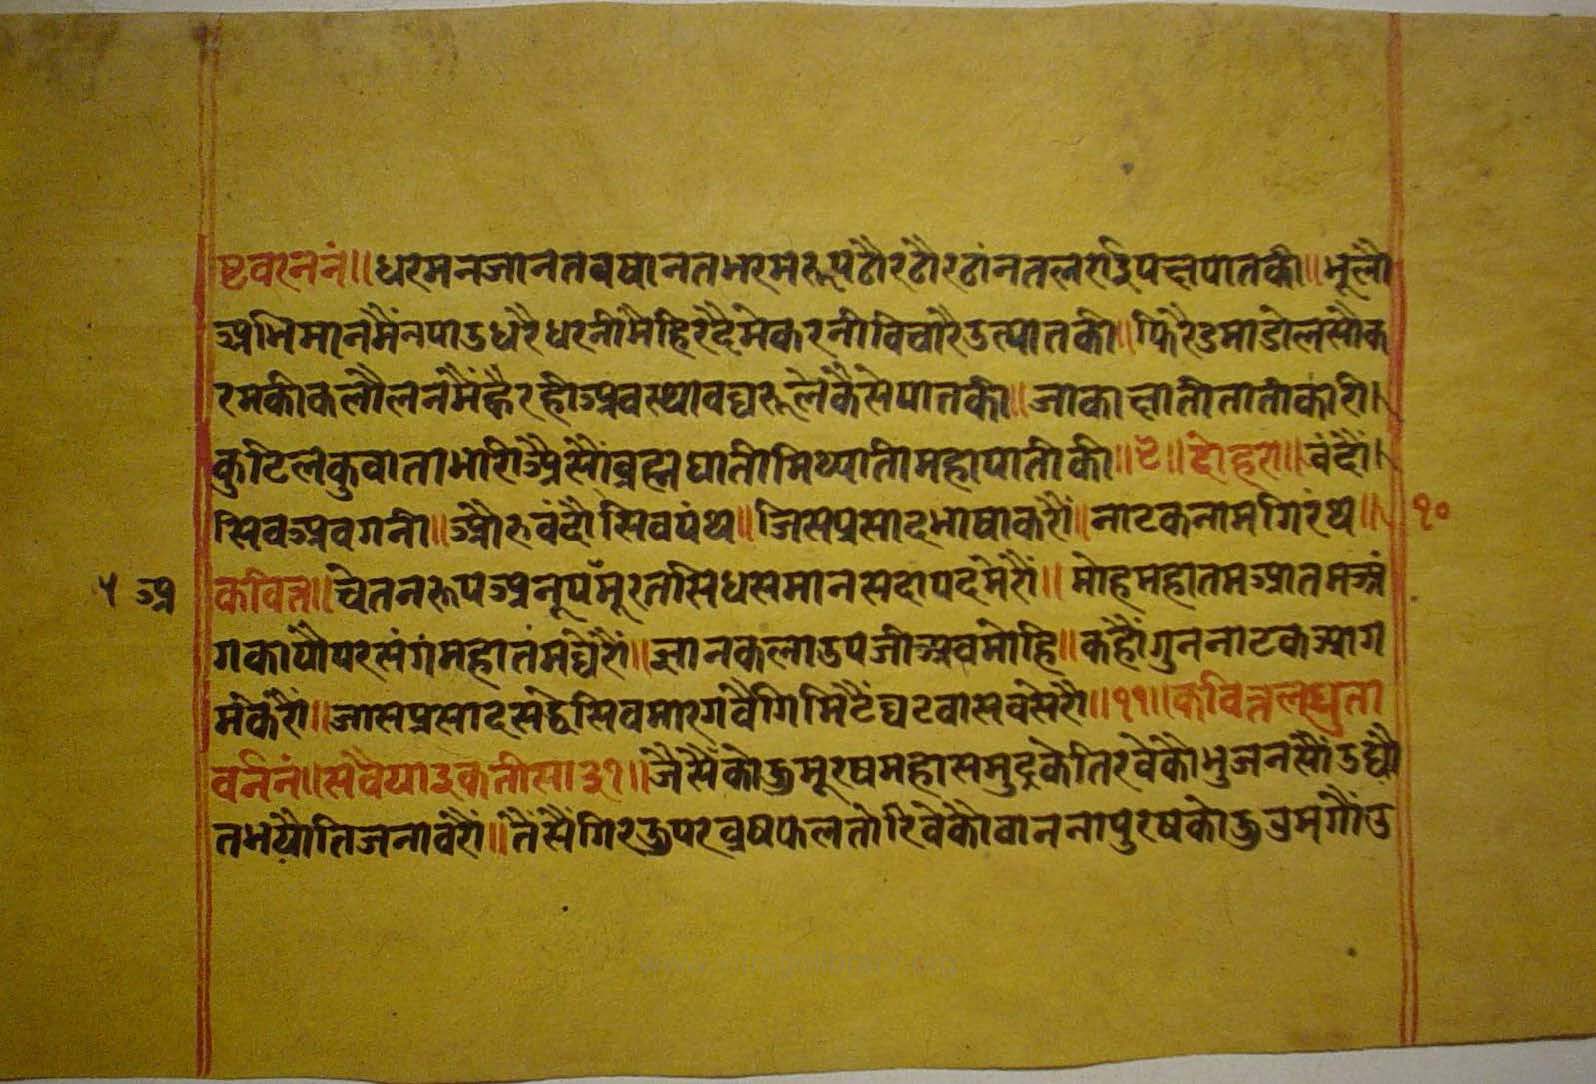 ष्टवरननं॥ धरमनजानतबषानतभरमरूपठौरठौरठांनतलराईपछपातकी॥ भूलौ
अभिमानमैंनपाउधरैधरनीमैहिरदैमेकरनीविचारैउतपातकी॥ फिरैडमाडोलसौक
रमकीकलौलनमैंह्वैरहीअवस्थावघरूलेकैसेपातकी॥ जाकाछातीतातीकारी।
कुटिलकुवाताभारीऐसौंब्रह्मघातीमिथ्यातीमहापातीकी॥ ९॥ दोहरा॥ वंदौं।
सिवअवगनी॥ औरुवंदौसिवपंथ॥ जिसप्रसादभाषाकरौं॥ नाटकनामगिरंथ॥ १०
कवित्त॥ चेतनरूपअनूपमूरतसिधसमानसदापदमेरौं॥ मोहमहातमआतमअं
५ अ
गकीयौपरसंगमहातमघेरौं॥ ज्ञानकलाउपजीअवमोहि॥ कहौंगुननाटकआग
मकेरौं॥ जासप्रसादसद्वेसिवमारगवेगिमिटैंघटवासवसेरौ॥ ११॥ कवित्तलघुता
वर्ननं॥ सवैयाइकतीसा ३१॥ जैसैंकोउमूरषमहासमुद्रकेतिरवेकौभुजनसौंउद्यौ
तभयौतिजनावरौं॥ तैंसैंगिरऊपरव्रषफलतोरिवेकौवाननापुरषकोउउमगौंउ